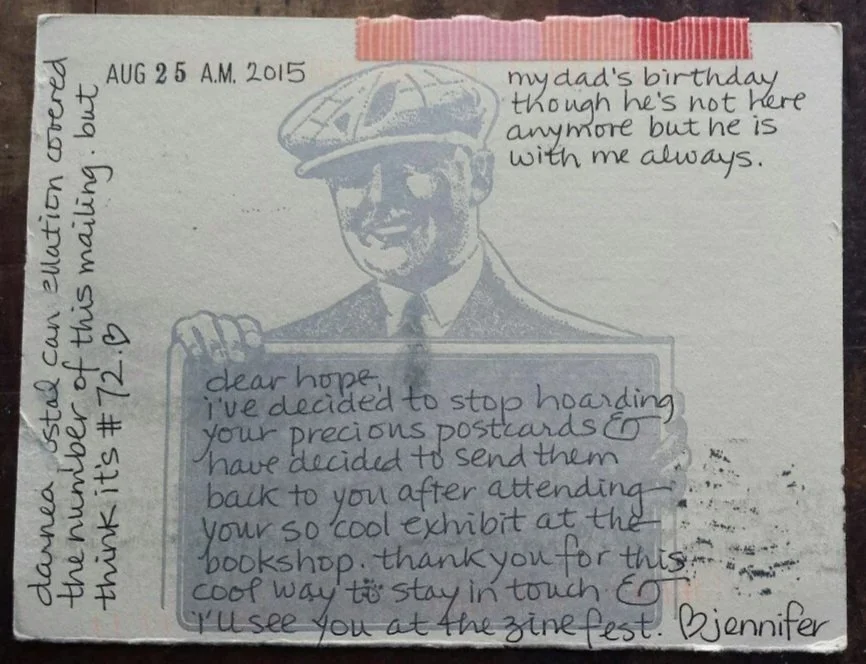 AUG 25 A.M. 2015
my dad's birthday
though he's not here
anymore but he is
with me always.
dear hope,
i've decided to stop hoarding
your precious postcards &
have decided to send them
back to you after attending
your so cool exhibit at the
bookshop. thank you for this
cool way to stay in touch &
i'll see you at the zine fest. ♡jennifer
covered
the number of this mailing. but
think it's #72.♡